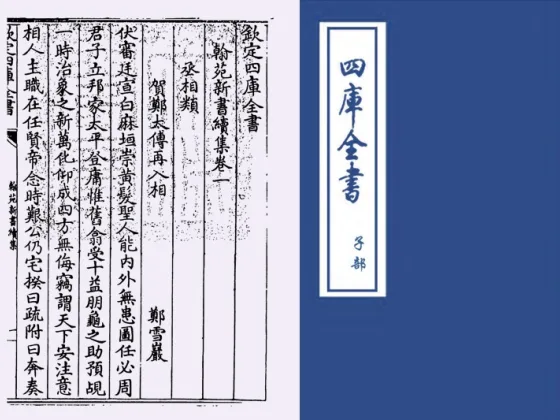 欽定四庫全書
翰苑新書續集卷一
丞相類
賀鄭太傅再入相
鄭雪巖
伏審廷宣白麻垣崇黃髮聖人能內外無患圖任必周
君子立邦家太平登庸惟舊翕受十益朋龜之助預覘
一時治象之新萬化仰成四方無侮竊謂天下安注意
相人主職在任賢帝念時艱公仍宅揆曰疏附曰奔奏
欽定四庫全書
翰苑新書續集
一
四庫全書
子部